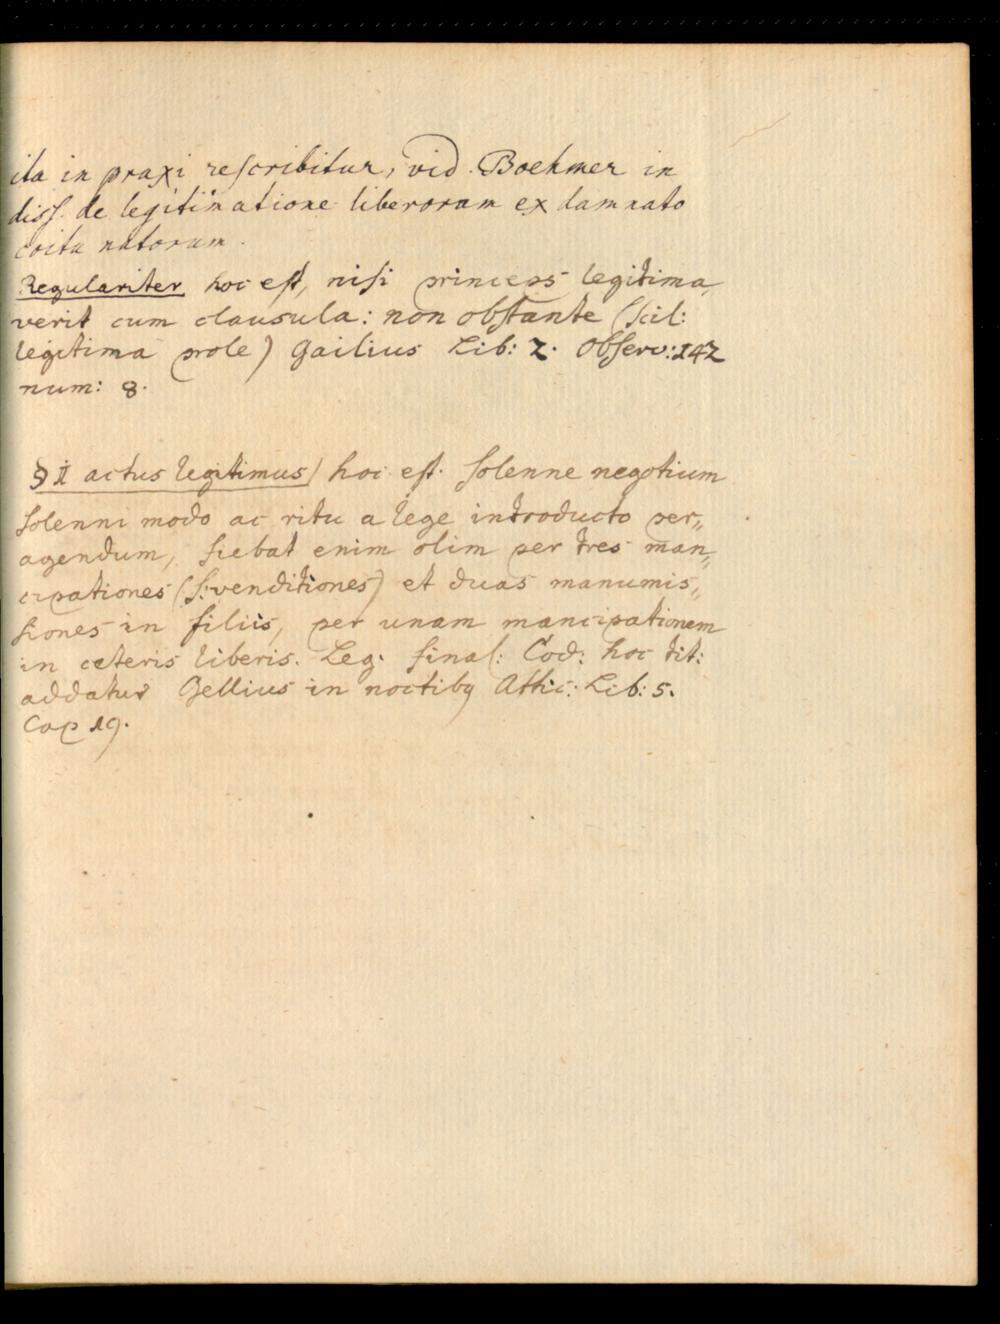 ita in praxi reſcribitur, vid. Boehmer in
diſſ. de legitimatione liberorum ex damnato
coitu natorum.
Regulariter hoc eſt, niſi princeps legitima,,
verit cum clausula: non obſtante (ſcil:
legitima prole) Gailius Lib: 2. Obſerv: 142
num: 8.
§ II actus legitimus) hoc eſt. ſolenne negotium
ſolenni modo ac ritu a lege introducto per,,
agendum, fiebat enim olim per tres man,,
cipationes (ſ: venditiones) et duas manumis,,
ſiones in filiis, per unam mancipationem
in ceteris liberis. Leg. final: Cod: hoc tit:
addatur Gellius in noctibꝫ Attic: Lib: 5.
Cap 19.